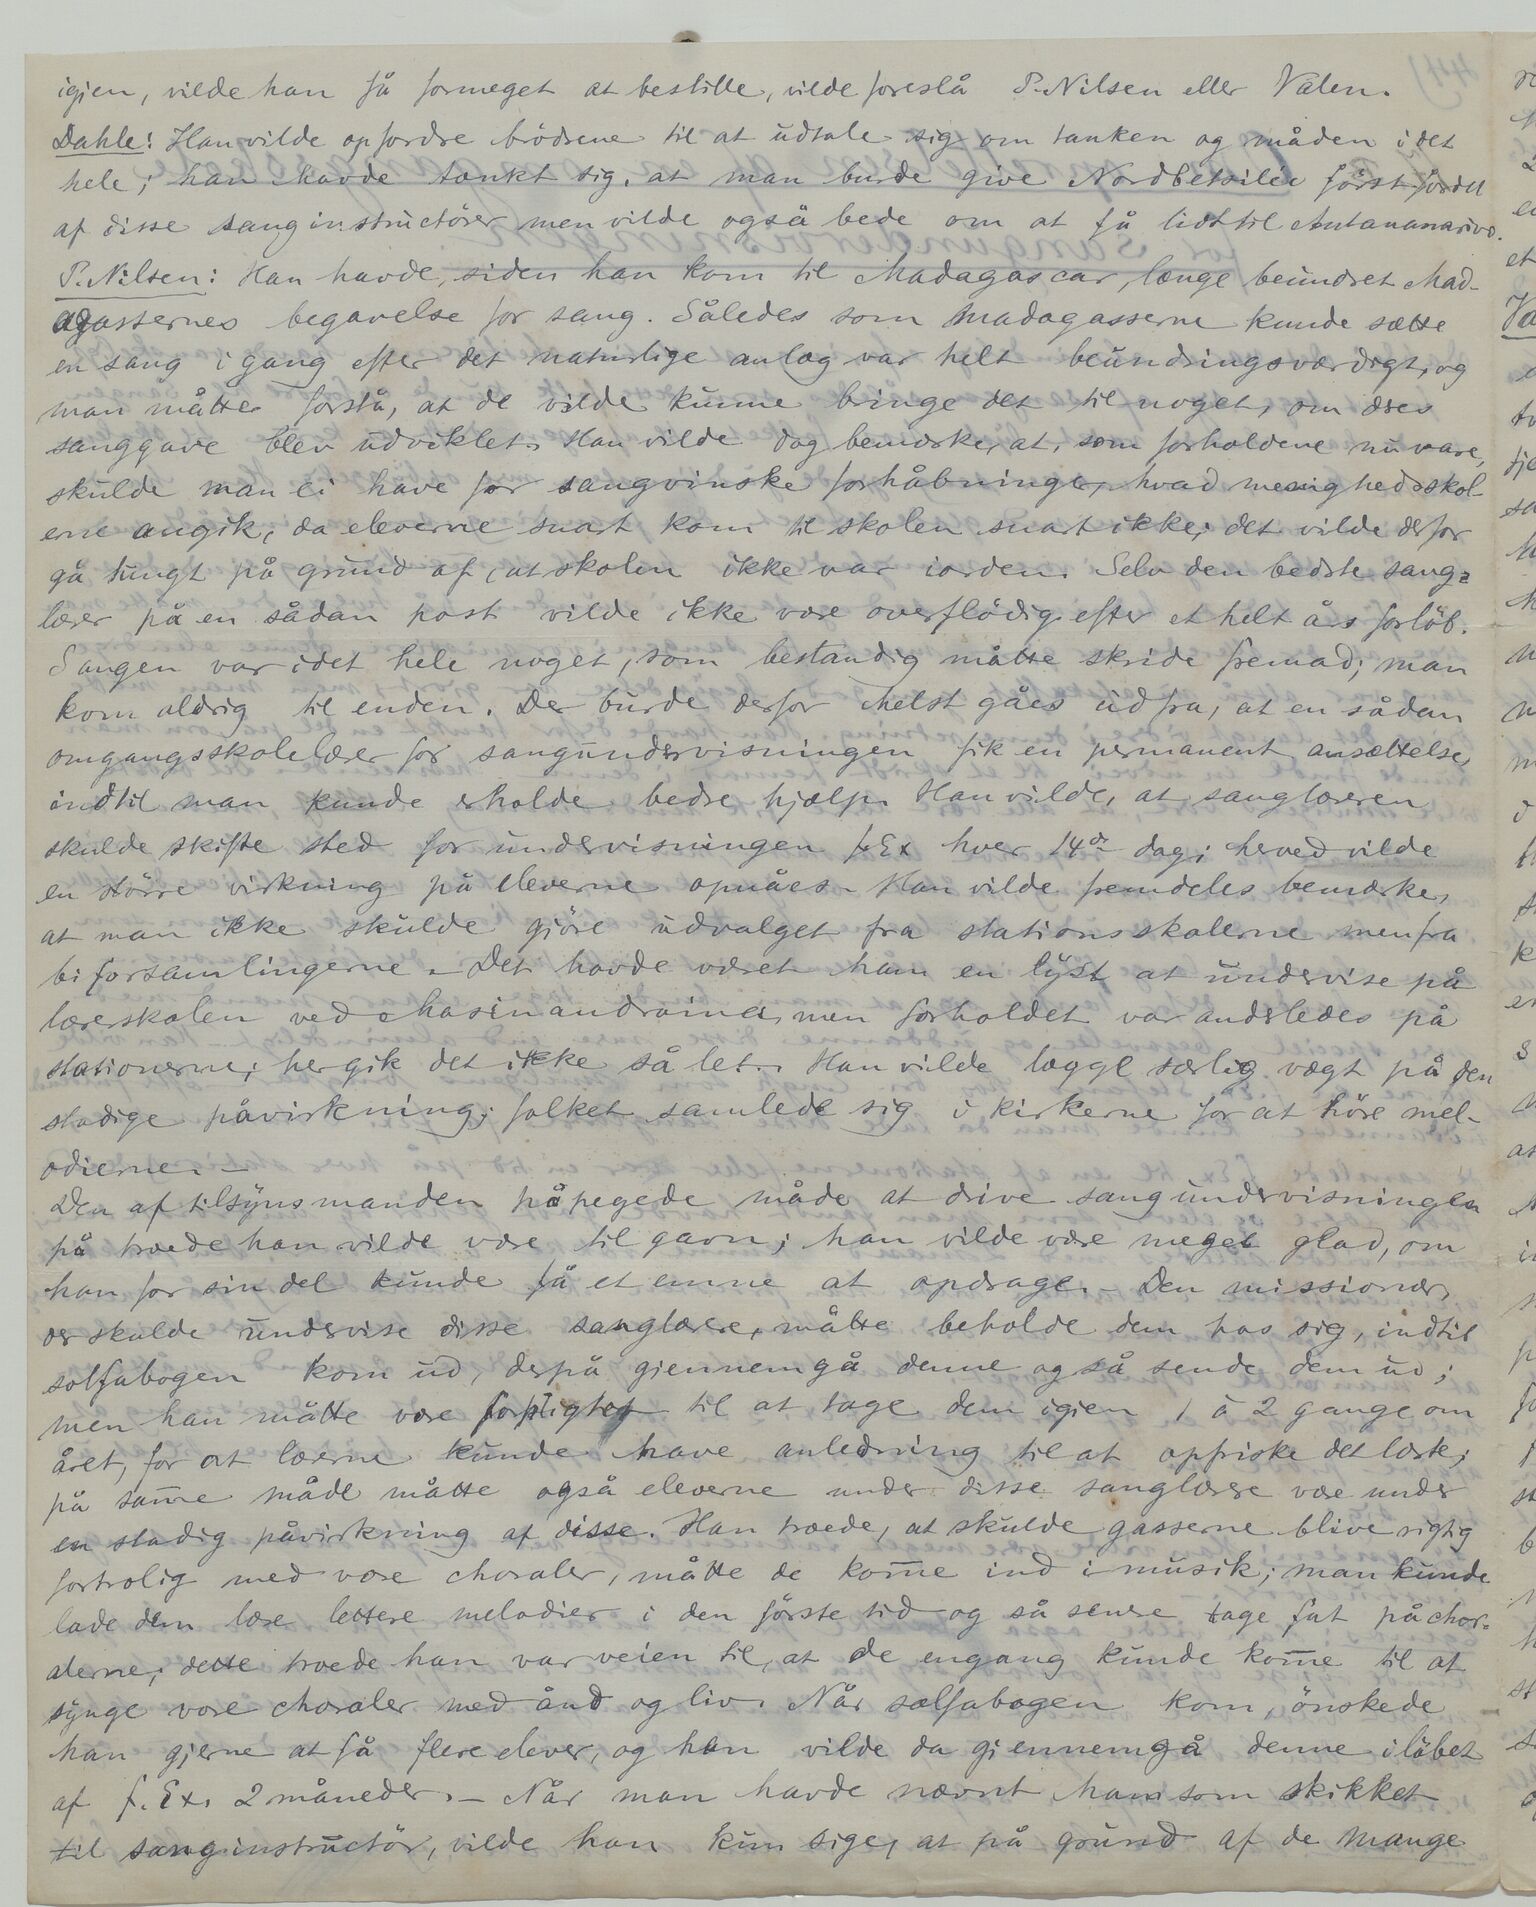 igjen, vilde han få formeget at bestille, vilde foreslå P. Nilsen eller Valen.
Dahle: Han vilde opfordre brödrene til at udtale sig om tanken og måden i det
hele; han havde tænkt sig, at man burde give Nordbetsileo först fordel
af disse sanginstructörer men vilde også bede om at få lidt til Antananarivo.
P. Nilsen: Han havde, siden han kom til Madagascar, længe beundret Mad-
agassernes begavelse for sang. Således som Madagasserne kunde sætte
en sang i gang efter det naturlige anlæg var helt beundringsværdigt, og
man måtte forstå, at de vilde kunne bringe det til noget, om deres
sanggave blev udviklet. Han vilde dog bemærke, at, som forholdene nu vare,
skulde man ei have for sangvinske forhåbninger, hvad menighedsskol-
erne angik, da eleverne snart kom til skolen snart ikke; det vilde derfor
gå tungt på grund af, at skolen ikke var iorden. Selv den bedste sang-
lærer på en sådan post vilde ikke være overflödig efter et helt års forlöb.
Sangen var idet hele noget, som bestandig måtte skride fremad; man
kom aldrig til enden. Der burde derfor helst gåes ud fra, at en sådan
omgangsskolelærer for sangundervisningen fik en permanent ansættelse,
indtil man kunde erholde bedre hjælp. Han vilde, at sanglæreren
skulde skifte sted for undervisningen f. Ex hver 14de dag; herved vilde
en större virkning på eleverne opnåes. Han vilde fremdeles bemærke,
at man ikke skulde gjöre udvalget fra stationsskolerne men fra
biforsamlingerne. Det havde været ham en lyst at undervise på
lærerskolen ved Masinandraina, men forholdet var anderledes på
stationerne; her gik det ikke så let. Han vilde lægge særlig vægt på den
stadige påvirkning; folket samlede sig i kirkerne for at höre mel-
odierne. —
Den af tilsynsmanden påpegede måde at drive sangundervisningen
på troede han vilde være til gavn; han vilde være meget glad, om
han for sin del kunde få et emne at opdrage. — Den missionær,
der skulde undervise disse sanglærere, måtte beholde dem hos sig, indtil
solfabogen kom ud, derpå gjennemgå denne og så sende dem ud;
men han måtte være forpligtet til at tage dem igjen 1 à 2 gange om
året, for at lærerne kunde have anledning til at opfriske det lærte;
på samme måde måtte også eleverne under disse sanglærere være under
en stadig påvirkning af disse. Han troede, at skulde gasserne blive rigtig
fortrolig med vore choraler, måtte de komme ind i musik; man kunde
lade dem lære lettere melodier i den förste tid og så senere tage fat på chor-
alerne; dette troede han var veien til, at de engang kunde komme til at
synge vore choraler med ånd og liv. Når solfabogen kom, önskede
han gjerne at få flere elever, og han vilde da gjennemgå denne i löbet
af f. Ex. 2 måneder. — Når man havde nævnt ham som skikket
til sanginstructör, vilde han kun sige, at på grund af de mange